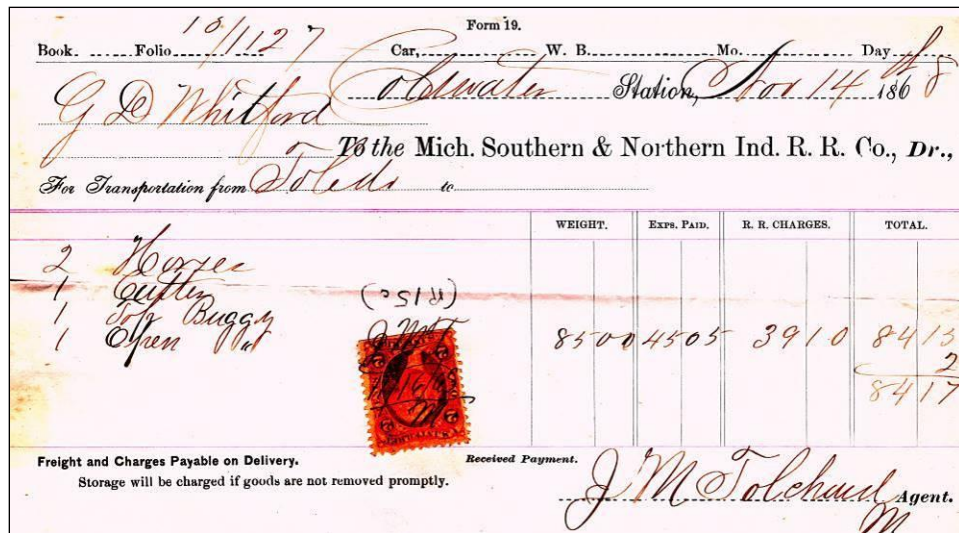 Form 19.
Book. Folio 10/1127 Car, W. B. Mo. Day
Coldwater Station, Nov 14th 1868
G D Whitford
To the Mich. Southern & Northern Ind. R. R. Co., Dr.,
For Transportation from Toledo to
WEIGHT. EXPS. PAID. R. R. CHARGES. TOTAL.
2 Horses
1 Cutter
1 Top Buggy
1 Open " 8500 4505 3910 8415
2
8417
(R15c)
J M T
Freight and Charges Payable on Delivery. Received Payment.
Storage will be charged if goods are not removed promptly.
J M Tolchard Agent.
M